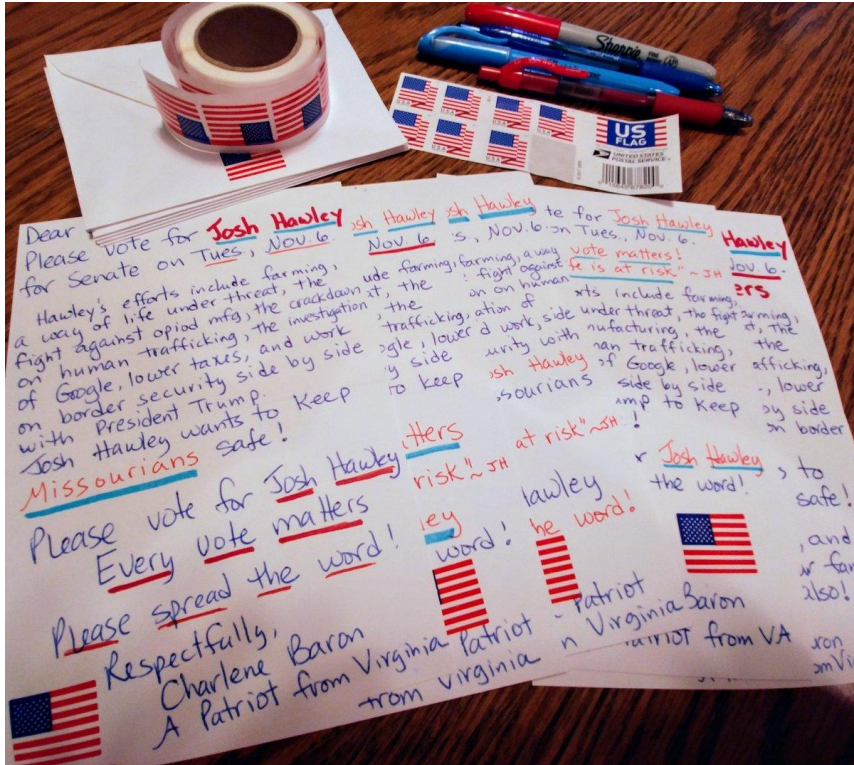 Sharpie
USA
USA
USA
USA
USA
USA
USA
US
FLAG
UNITED STATES
POSTAL SERVICE
Dear
Please vote for Josh Hawley
for Senate on Tues., Nov. 6.
Hawley's efforts include farming,
a way of life under threat, the
fight against opiod mfg, the crackdown
on human trafficking, the investigation
of Google, lower taxes, and work
on border security side by side
with President Trump.
Josh Hawley wants to Keep
Missourians safe!
Please vote for Josh Hawley
Every vote matters
Please spread the word!
Respectfully,
Charlene Baron
A Patriot from Virginia
Hawley
Nov. 6
ude farming,
the
trafficking,
lower
side
to keep
risk" ~ JH
word!
Patriot
from Virginia
Hawley
s, Nov.
farming, a way
fight against
on human
ation of
d work,
urity with
Hawley
sourians
at risk" ~ JH
lawley
he word!
te for Josh Hawley
on Tues., Nov. 6.
vote matters!
fe is at risk" ~ JH
rts include farming,
side under threat, the fight
nufacturing, the
an trafficking,
of Google, lower
side by side
ump to Keep
!
r Josh Hawley
the word!
Patriot
n Virginia Baron
Patriot from VA
Hawley
Nov. 6.
ers
arming,
t, the
the
afficking,
., lower
by side
on border
, to
safe!
, and
ur fam
also!
ron